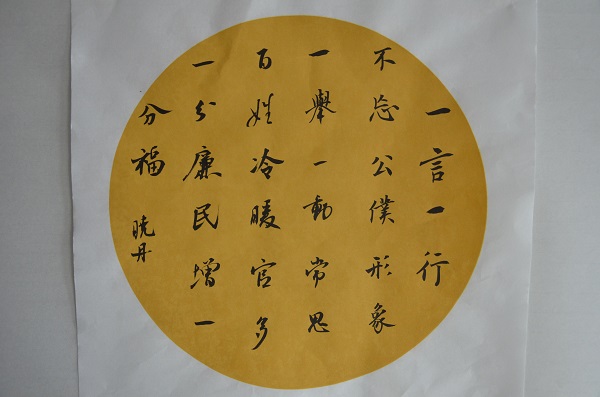 一言一行
不忘公僕形象
一舉一動常思
百姓冷暖官多
一分廉民增一
分福
晓丹